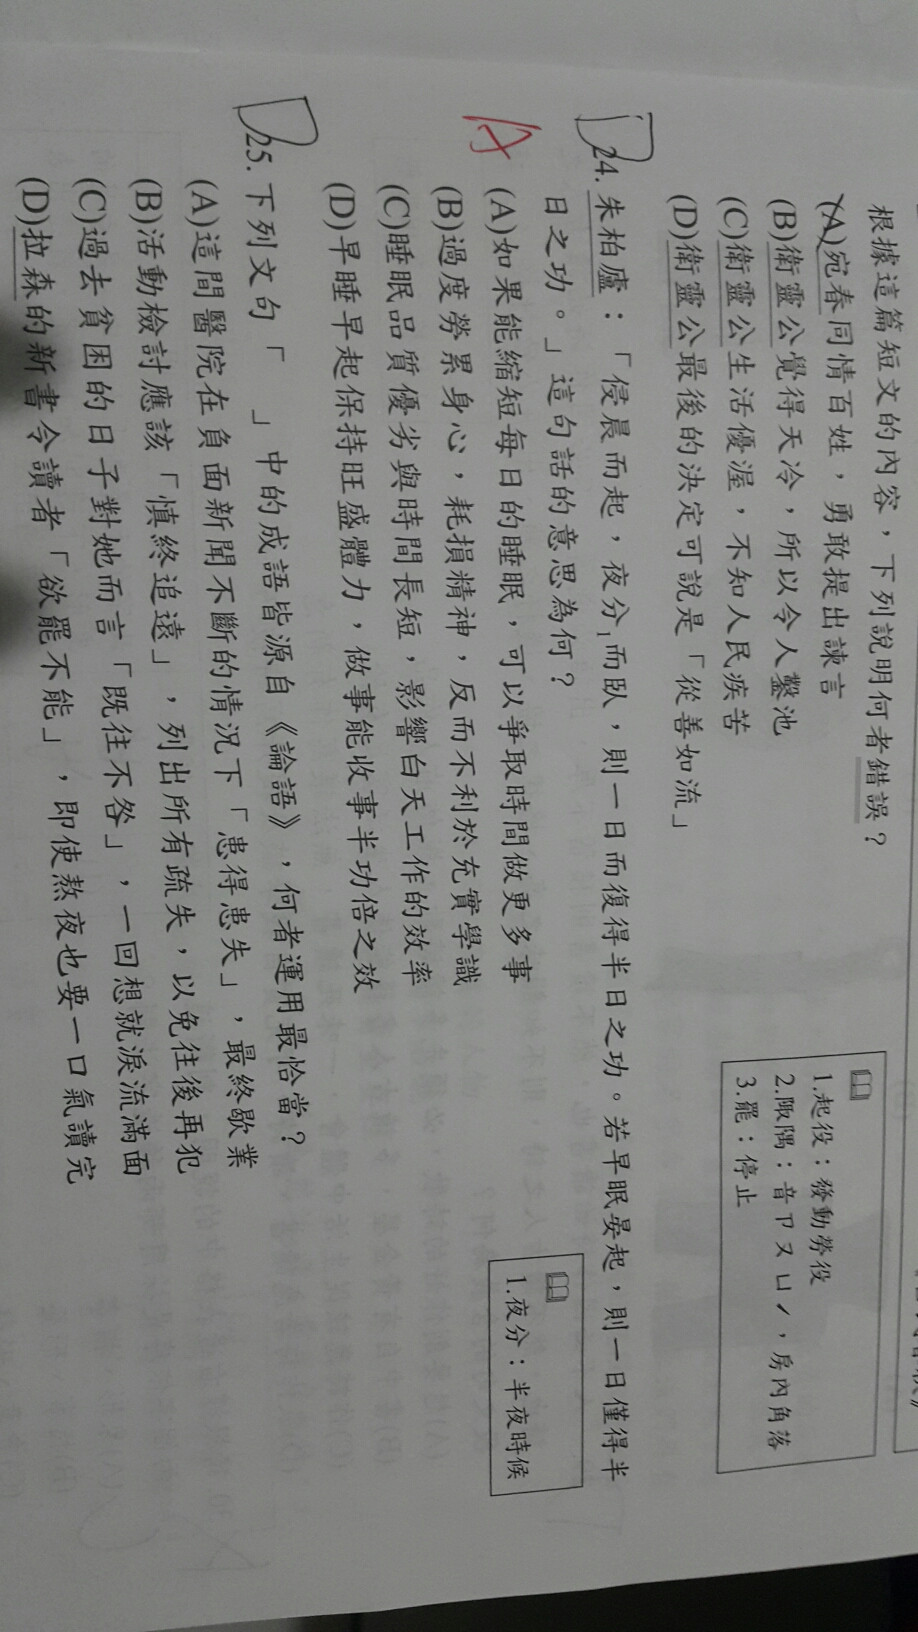 根據這篇短文的內容，下列說明何者錯誤？
(A)宛春同情百姓，勇敢提出諫言
(B)衛靈公覺得天冷，所以令人鑿池
(C)衛靈公生活優渥，不知人民疾苦
(D)衛靈公最後的決定可說是「從善如流」
1.起役：發動勞役
2.陬隅：音ㄗㄡ ㄩˊ，房內角落
3.罷：停止
D 24. 朱柏廬：「侵晨而起，夜分1而臥，則一日而復得半日之功。若早眠晏起，則一日僅得半
日之功。」這句話的意思為何？
A
(A)如果能縮短每日的睡眠，可以爭取時間做更多事
(B)過度勞累身心，耗損精神，反而不利於充實學識
(C)睡眠品質優劣與時間長短，影響白天工作的效率
(D)早睡早起保持旺盛體力，做事能收事半功倍之效
1.夜分：半夜時候
D 25. 下列文句「　」中的成語皆源自《論語》，何者運用最恰當？
(A)這間醫院在負面新聞不斷的情況下「患得患失」，最終歇業
(B)活動檢討應該「慎終追遠」，列出所有疏失，以免往後再犯
(C)過去貧困的日子對她而言「既往不咎」，一回想就淚流滿面
(D)拉森的新書令讀者「欲罷不能」，即使熬夜也要一口氣讀完